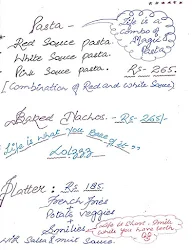 Pasta -
Life is a
combo of
Magic &
Pasta
Red Sauce pasta.
White Sauce pasta.
Pink Sauce pasta. Rs- 265.
[Combination of Red and White Sauce]
Baked Nachos. - Rs- 265/-
"Life is what you Bake of it"
Platter : Rs 185
→ French fries
→ Potato veggies
→ Smilies
Life is Short. Smile
while you have teeth
Sauce